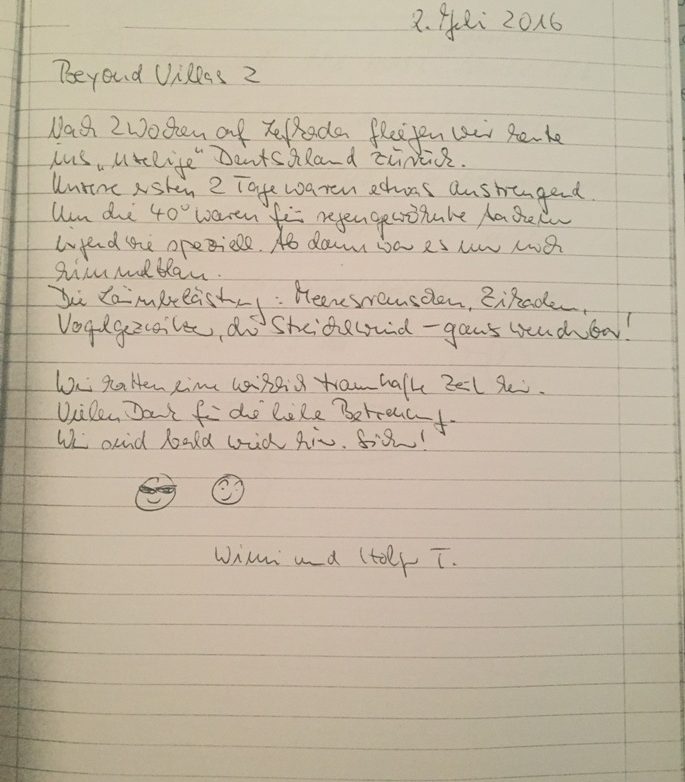 2. Juli 2016
Beyond Villas 2
Nach 2 Wochen auf Lefkada fliegen wir heute
ins „uselige“ Deutschland zurück.
Unsere ersten 2 Tage waren etwas anstrengend.
Um die 40° waren für regengewöhnte
irgendwie speziell. Ab dann war es nur noch
himmelblau.
Die Lärmbelästung: Meeresrauschen, Zikaden,
Vogelgezwitscher, der Streichelwind – ganz wunderbar!
Wir hatten eine wirklich traumhafte Zeit hier.
Vielen Dank für die liebe Betreuung.
Wir sind bald wieder hier. Sicher!
und Holger T.